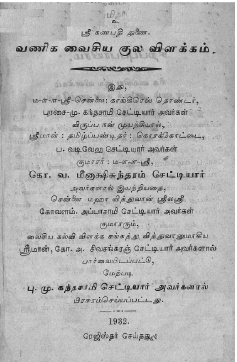 உ
ஸ்ரீ கணபதி துணை.
வணிக வைசிய குல விளக்கம்.
இது,
ம-ள-ள-ஸ்ரீ சென்னை; காங்கிரெஸ் தொண்டர்,
புரசை-மு. கந்தசாமி செட்டியார் அவர்கள்
விருப்பத்தின்
ஸ்ரீமான்: தமிழ்ப்பண்டிதர்:
ப. வடிவேலு செட்டியார் அவர்கள்
குமாரர்: ம-ள-ள-ஸ்ரீ,
கோ. வ. மீனாக்ஷிசுந்தரம் செட்டியார்
அவர்களால் இயற்றியதை,
சென்னை மஹா வித்துவான் ஸ்ரீலஸ்ரீ
கோவளம். அப்பாசாமி செட்டியார் அவர்கள்
குமாரரும்,
வைசிய கல்வி விளக்க சங்கத்து வித்துவானுமாகிய
ஸ்ரீமான், கோ. அ. சிவசங்கரஞ் செட்டியார் அவர்களால்
பார்வையிடப்பட்டு,
மேற்படி
பு. மு. கந்தசாமி செட்டியார் அவர்களால்
பிரசுரம்செய்யப்பட்டது.
1932.
ரெஜிஸ்டர் செய்தது